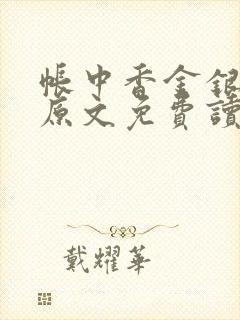 帳中香金銀
原文免費讀
戴耀華